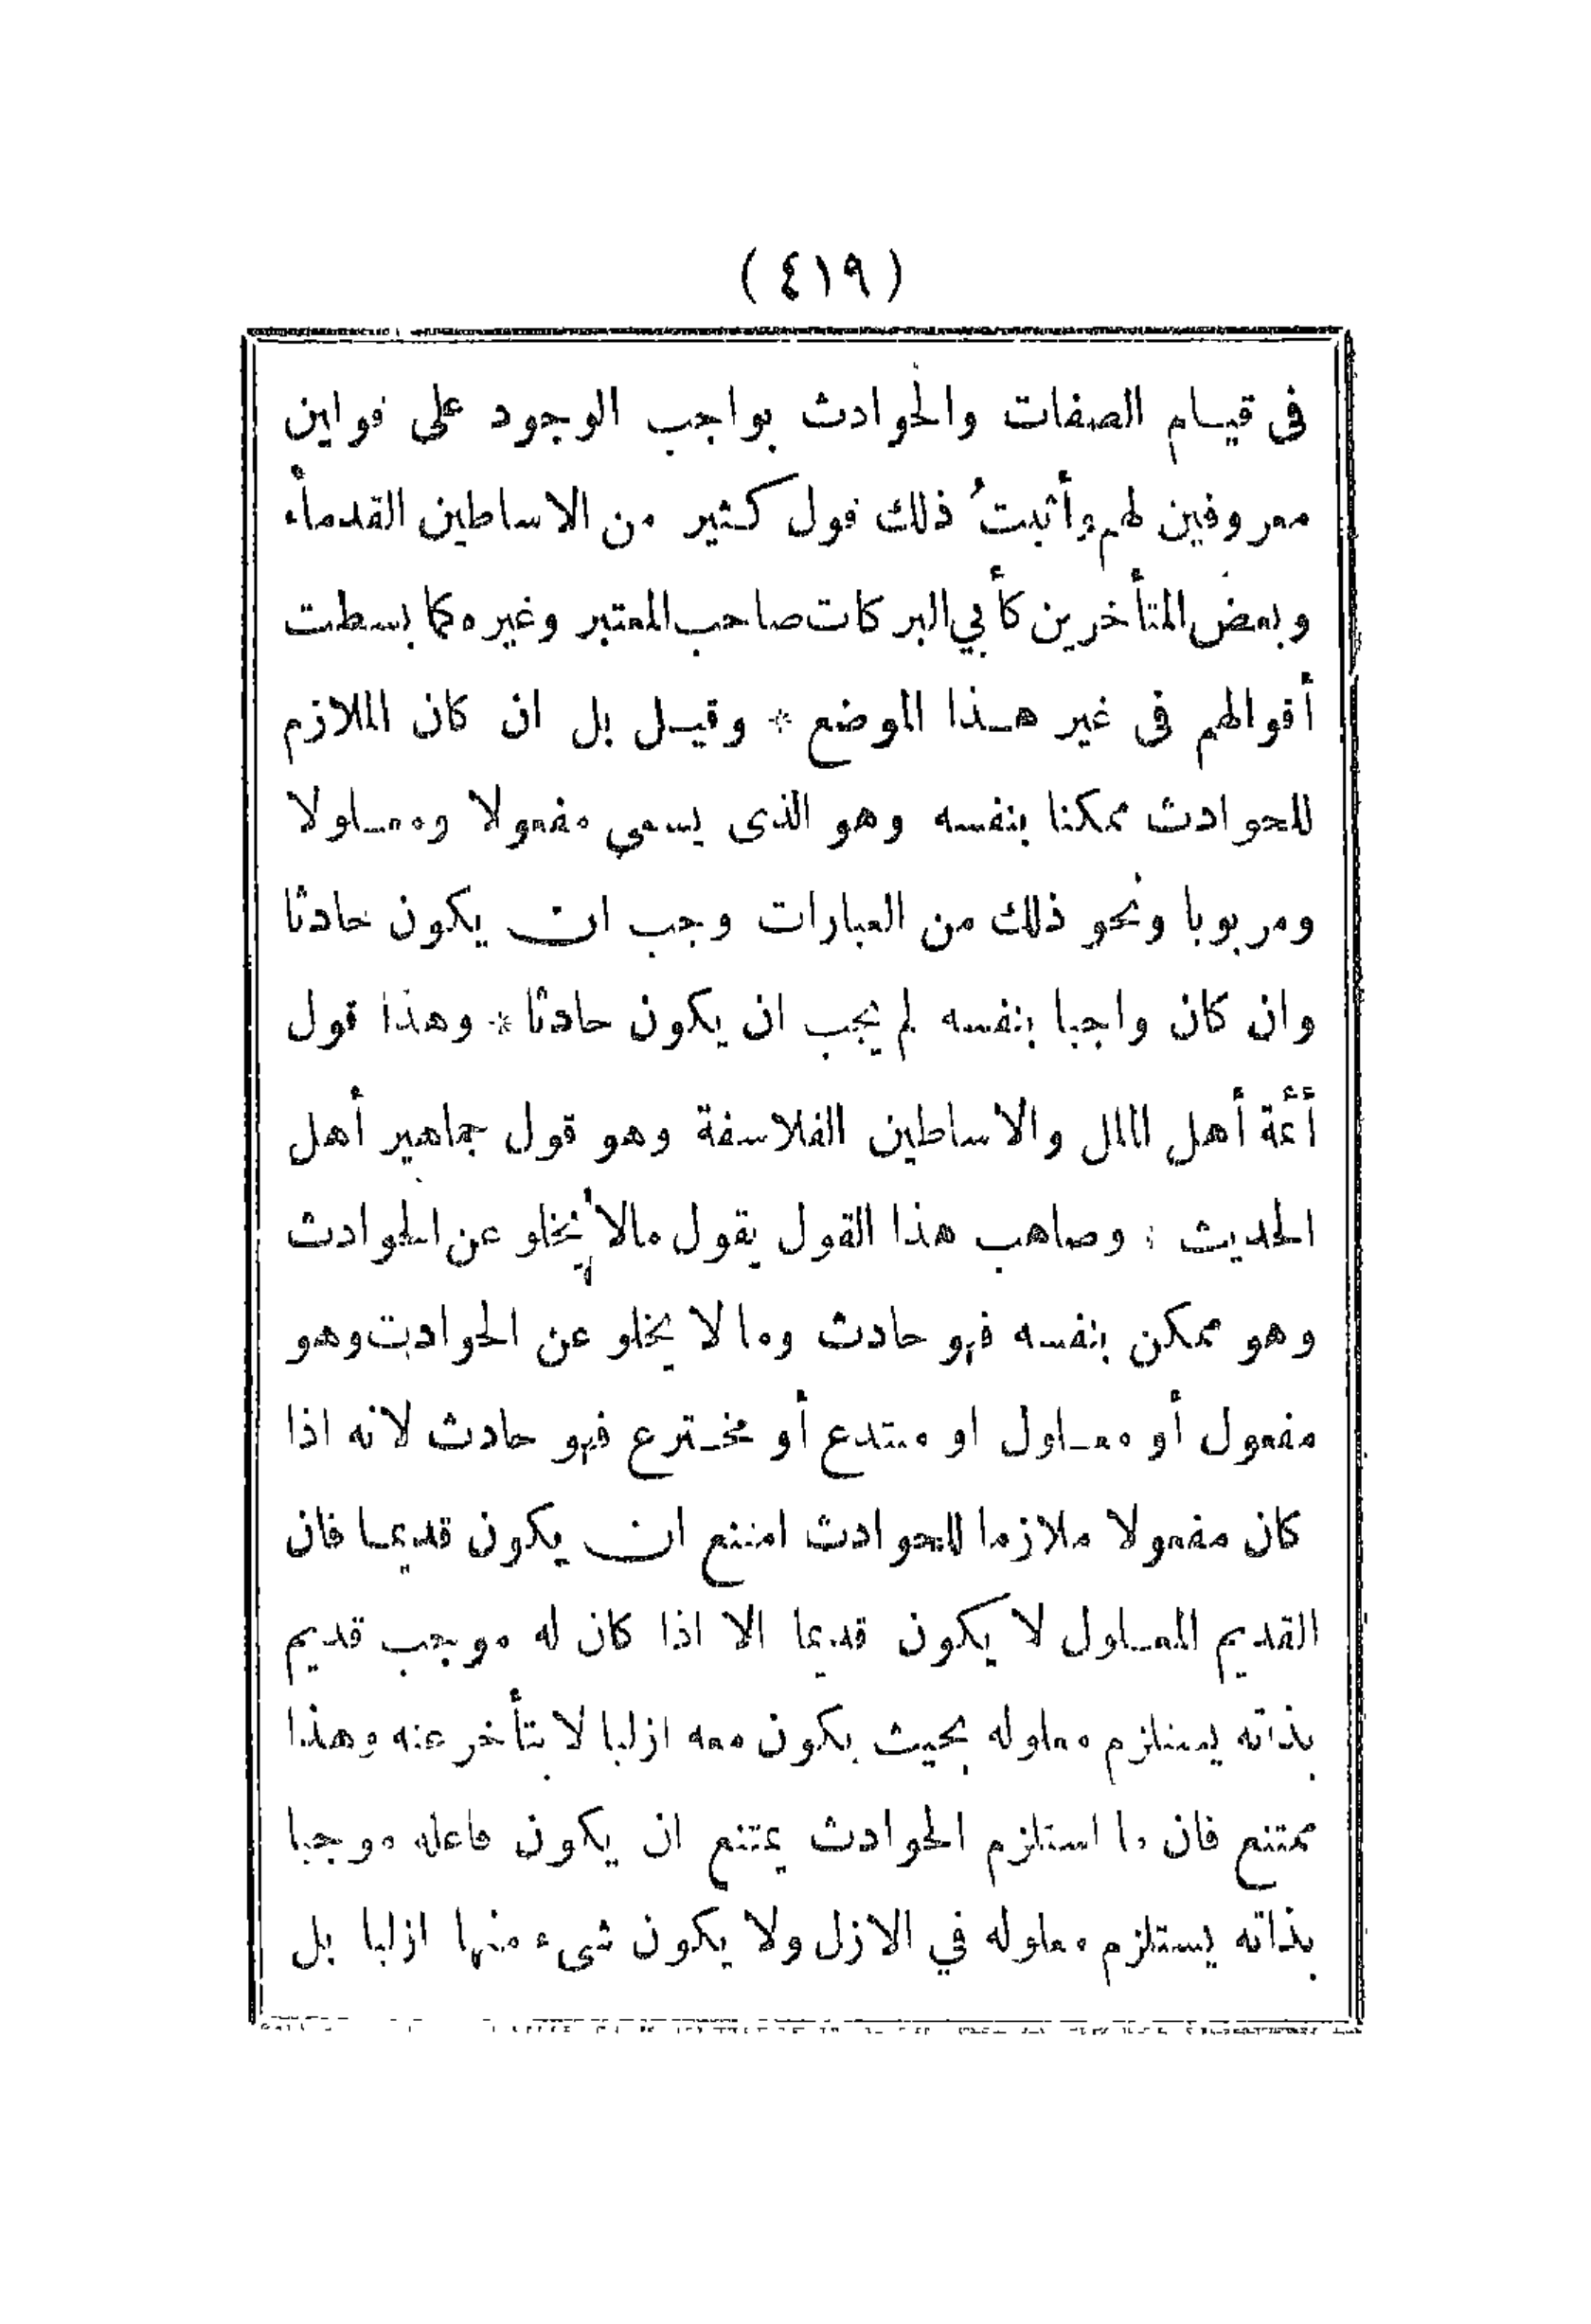 (٤١٩)
فى قيام الصفات والحوادث بواجب الوجود على قولين
معروفين لهم وأثبتُ ذلك قول كثير من الاساطين القدماء
وبعض المتأخرين كأبي البركات صاحب المعتبر وغيره كما بسطت
أقوالهم فى غير هذا الموضع * وقيل بل ان كان الملازم
للحوادث ممكنا بنفسه وهو الذى يسمى مفعولا ومعلولا
ومربوبا ونحو ذلك من العبارات وجب ان يكون حادثا
وان كان واجبا بنفسه لم يجب ان يكون حادثا * وهذا قول
أئمة أهل الملل والاساطين الفلاسفة وهو قول جماهير أهل
الحديث : وصاهب هذا القول يقول مالا يخلو عن الحوادث
وهو ممكن بنفسه فهو حادث وما لا يخلو عن الحوادث وهو
مفعول أو معلول او مبتدع أو مخترع فهو حادث لانه اذا
كان مفعولا ملازما للحوادث امتنع ان يكون قديما فان
القديم المعلول لا يكون قديما الا اذا كان له موجب قديم
بذاته يستلزم معلوله بحيث يكون معه ازليا لا يتأخر عنه وهذا
ممتنع فان ما استلزم الحوادث يمتنع ان يكون فاعله موجبا
بذاته يستلزم معلوله في الازل ولا يكون شىء منها ازليا بل